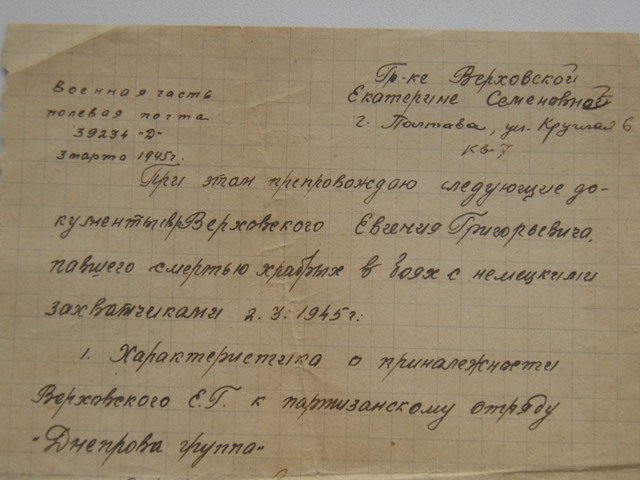 Гр-ке Верховской
Екатерине Семеновной
г. Полтава, ул. Круглая 6
кв 7
Военная часть
полевая почта
39234 "Д"
3 марта 1945г.
При этом препровождаю следующие до-
кументы Верховского Евгения Григорьевича,
павшего смертью храбрых в боях с немецкими
захватчиками 2.3.1945г:
1. Характеристика о приналежности
Верховского Е.Г. к партизанскому отряду
"Днепрова группа"